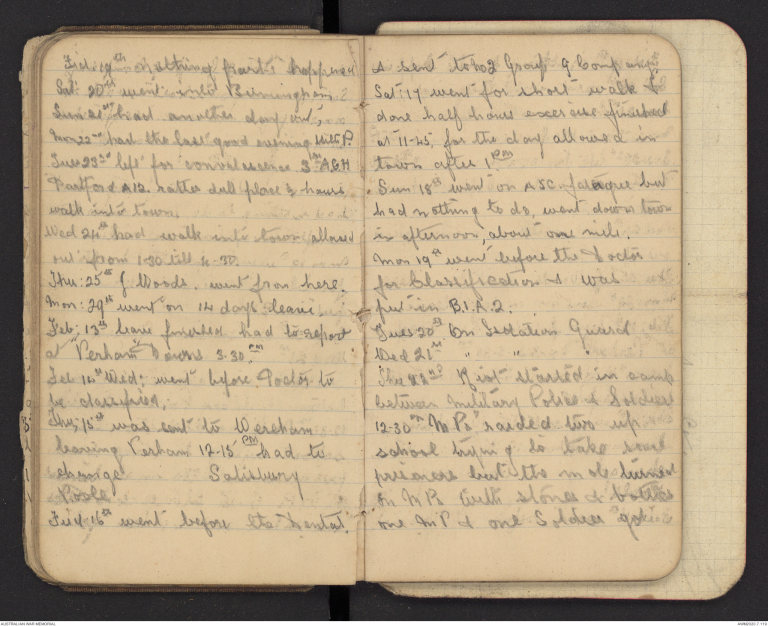 Frid. 19th nothing part. happened
Sat: 20th went into Birmingham
Sun: 21st had another day out,
Mon 22nd had the last good evening with P.
Tues 23rd left for convalescence 3rd A.G.H
Dartford A12. rather dull place ½ hours
walk into town.
Wed 24th had walk into town allowed
out from 1-30 till 4-30.
Thu: 25th J Woods. went from here.
Mon: 29th went on 14 days leave
Feb: 13th leave finished had to report
at "Perham Downs 3.30. pm
Feb 14th Wed; went before Doctor to
be classified,
Thu; 15th was sent to Wareham
leaving Perham 12-15 pm had to
change Salisbury
Poole
Frid 16th went before the Dental.
& sent to No2 Group 9 Comp
Sat: 17 went for short walk &
done half hours excercise finished
at 11-45, for the day allowed in
town after 1. pm
Sun 18th went on ASC fatague but
had nothing to do, went down town
in afternoon, about one mile.
Mon 19th went before the Doctor
for Classification & was
put in B.1.A.2.
Tues 20th On Isolation Guard
Wed 21st " "
Thu 22nd Riot started in camp
between Military Police & Soldiers
12-30 pm M Ps raided two up
school trying to take some
prisoners but the mob turned
on M Ps with stones & bottles
one M P & one Soldier got
AUSTRALIAN WAR MEMORIAL